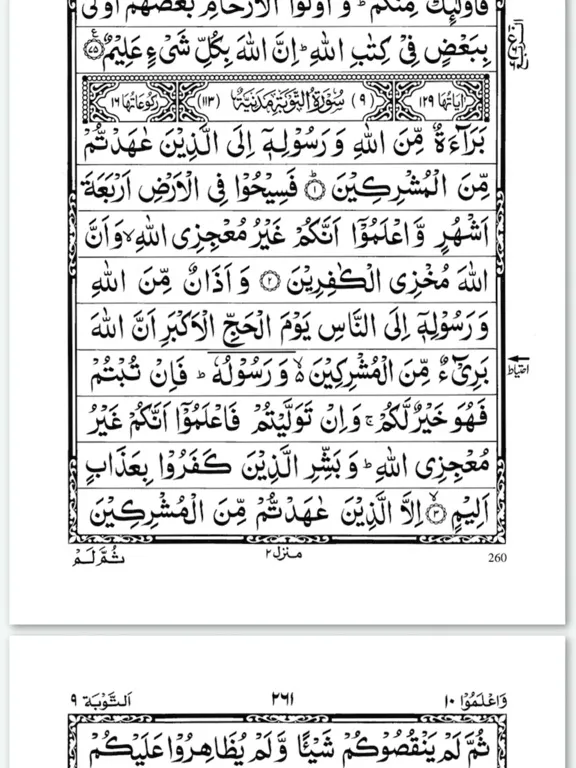 فَاُولٰٓئِكَ مِنْكُمْ ؕ وَ اُولُوا الْاَرْحَامِ بَعْضُهُمْ اَوْلٰى
بِبَعْضٍ فِىْ كِتٰبِ اللّٰهِ ؕ اِنَّ اللّٰهَ بِكُلِّ شَىْءٍ عَلِيْمٌ ﴿۷۵﴾ ع
اٰيَاتُهَا ۱۲۹ (۹) سُوْرَةُ التَّوْبَةِ مَدَنِيَّةٌ (۱۱۳) رُكُوْعَاتُهَا ۱۶
بَرَآءَةٌ مِّنَ اللّٰهِ وَ رَسُوْلِهٖۤ اِلَى الَّذِيْنَ عٰهَدْتُّمْ
مِّنَ الْمُشْرِكِيْنَ ﴿۱﴾ؕ فَسِيْحُوْا فِى الْاَرْضِ اَرْبَعَةَ
اَشْهُرٍ وَّ اعْلَمُوْۤا اَنَّكُمْ غَيْرُ مُعْجِزِى اللّٰهِ ۙ وَ اَنَّ
اللّٰهَ مُخْزِى الْكٰفِرِيْنَ ﴿۲﴾ وَ اَذَانٌ مِّنَ اللّٰهِ
وَ رَسُوْلِهٖۤ اِلَى النَّاسِ يَوْمَ الْحَجِّ الْاَكْبَرِ اَنَّ اللّٰهَ
بَرِىْٓءٌ مِّنَ الْمُشْرِكِيْنَ ۙ۬ وَ رَسُوْلُهٗ ؕ فَاِنْ تُبْتُمْ
احتياط
فَهُوَ خَيْرٌ لَّكُمْ ۚ وَ اِنْ تَوَلَّيْتُمْ فَاعْلَمُوْۤا اَنَّكُمْ غَيْرُ
مُعْجِزِى اللّٰهِ ؕ وَ بَشِّرِ الَّذِيْنَ كَفَرُوْا بِعَذَابٍ
اَلِيْمٍ ﴿۳﴾ۙ اِلَّا الَّذِيْنَ عٰهَدْتُّمْ مِّنَ الْمُشْرِكِيْنَ
ثُمَّ لَمْ منزل ۲ 260
وَاعْلَمُوْۤا ۱۰ ۲۶۱ اَلتَّوْبَة ۹
ثُمَّ لَمْ يَنْقُصُوْكُمْ شَيْـًٔا وَّ لَمْ يُظَاهِرُوْا عَلَيْكُمْ